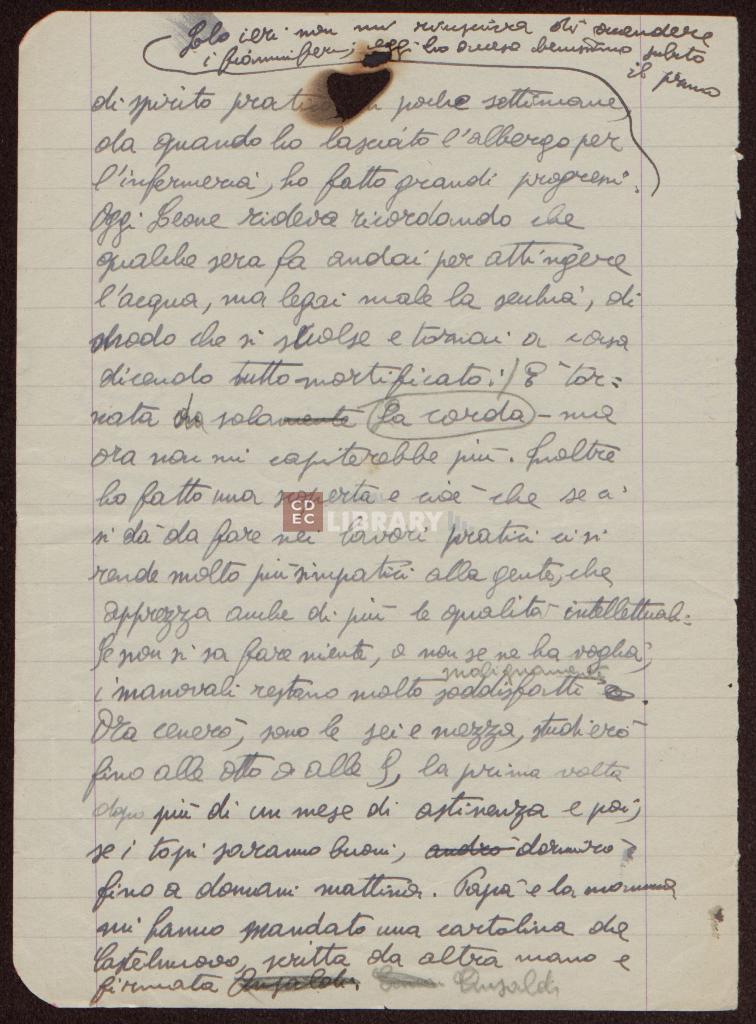 Solo ieri non mi riusciva di accendere
i fiammiferi; oggi ho acceso benissimo subito
il primo
di spirito poche settimane,
da quando ho lasciato l'albergo per
l'infermeria, ho fatto grandi progressi.
Oggi Leone rideva ricordando che
qualche sera fa andai per attingere
l'acqua, ma legai male la secchia, di
modo che si sciolse e tornai a casa
dicendo tutto mortificato: È tor=
nata solamente la corda - ma
ora non mi capiterebbe più. Inoltre
ho fatto una scoperta e cioè che se ci
si dà da fare nei lavori pratici ci si
rende molto più simpatici alla gente, che
apprezza anche di più le qualità intellettuali:
Se non si sa fare niente, o non se ne ha voglia,
malignamente
i manovali restano molto soddisfatti.
Ora cenerò, sono le sei e mezza, studierò
fino alle otto o alle 9, la prima volta
dopo più di un mese di astinenza e poi,
se i topi saranno buoni, andrò dormirò
fino a domani mattina. Papà e la mamma
mi hanno mandato una cartolina da
Castelnuovo, scritta da altra mano e
firmata Ansaldi Ansaldi
CD
EC LIBRARY